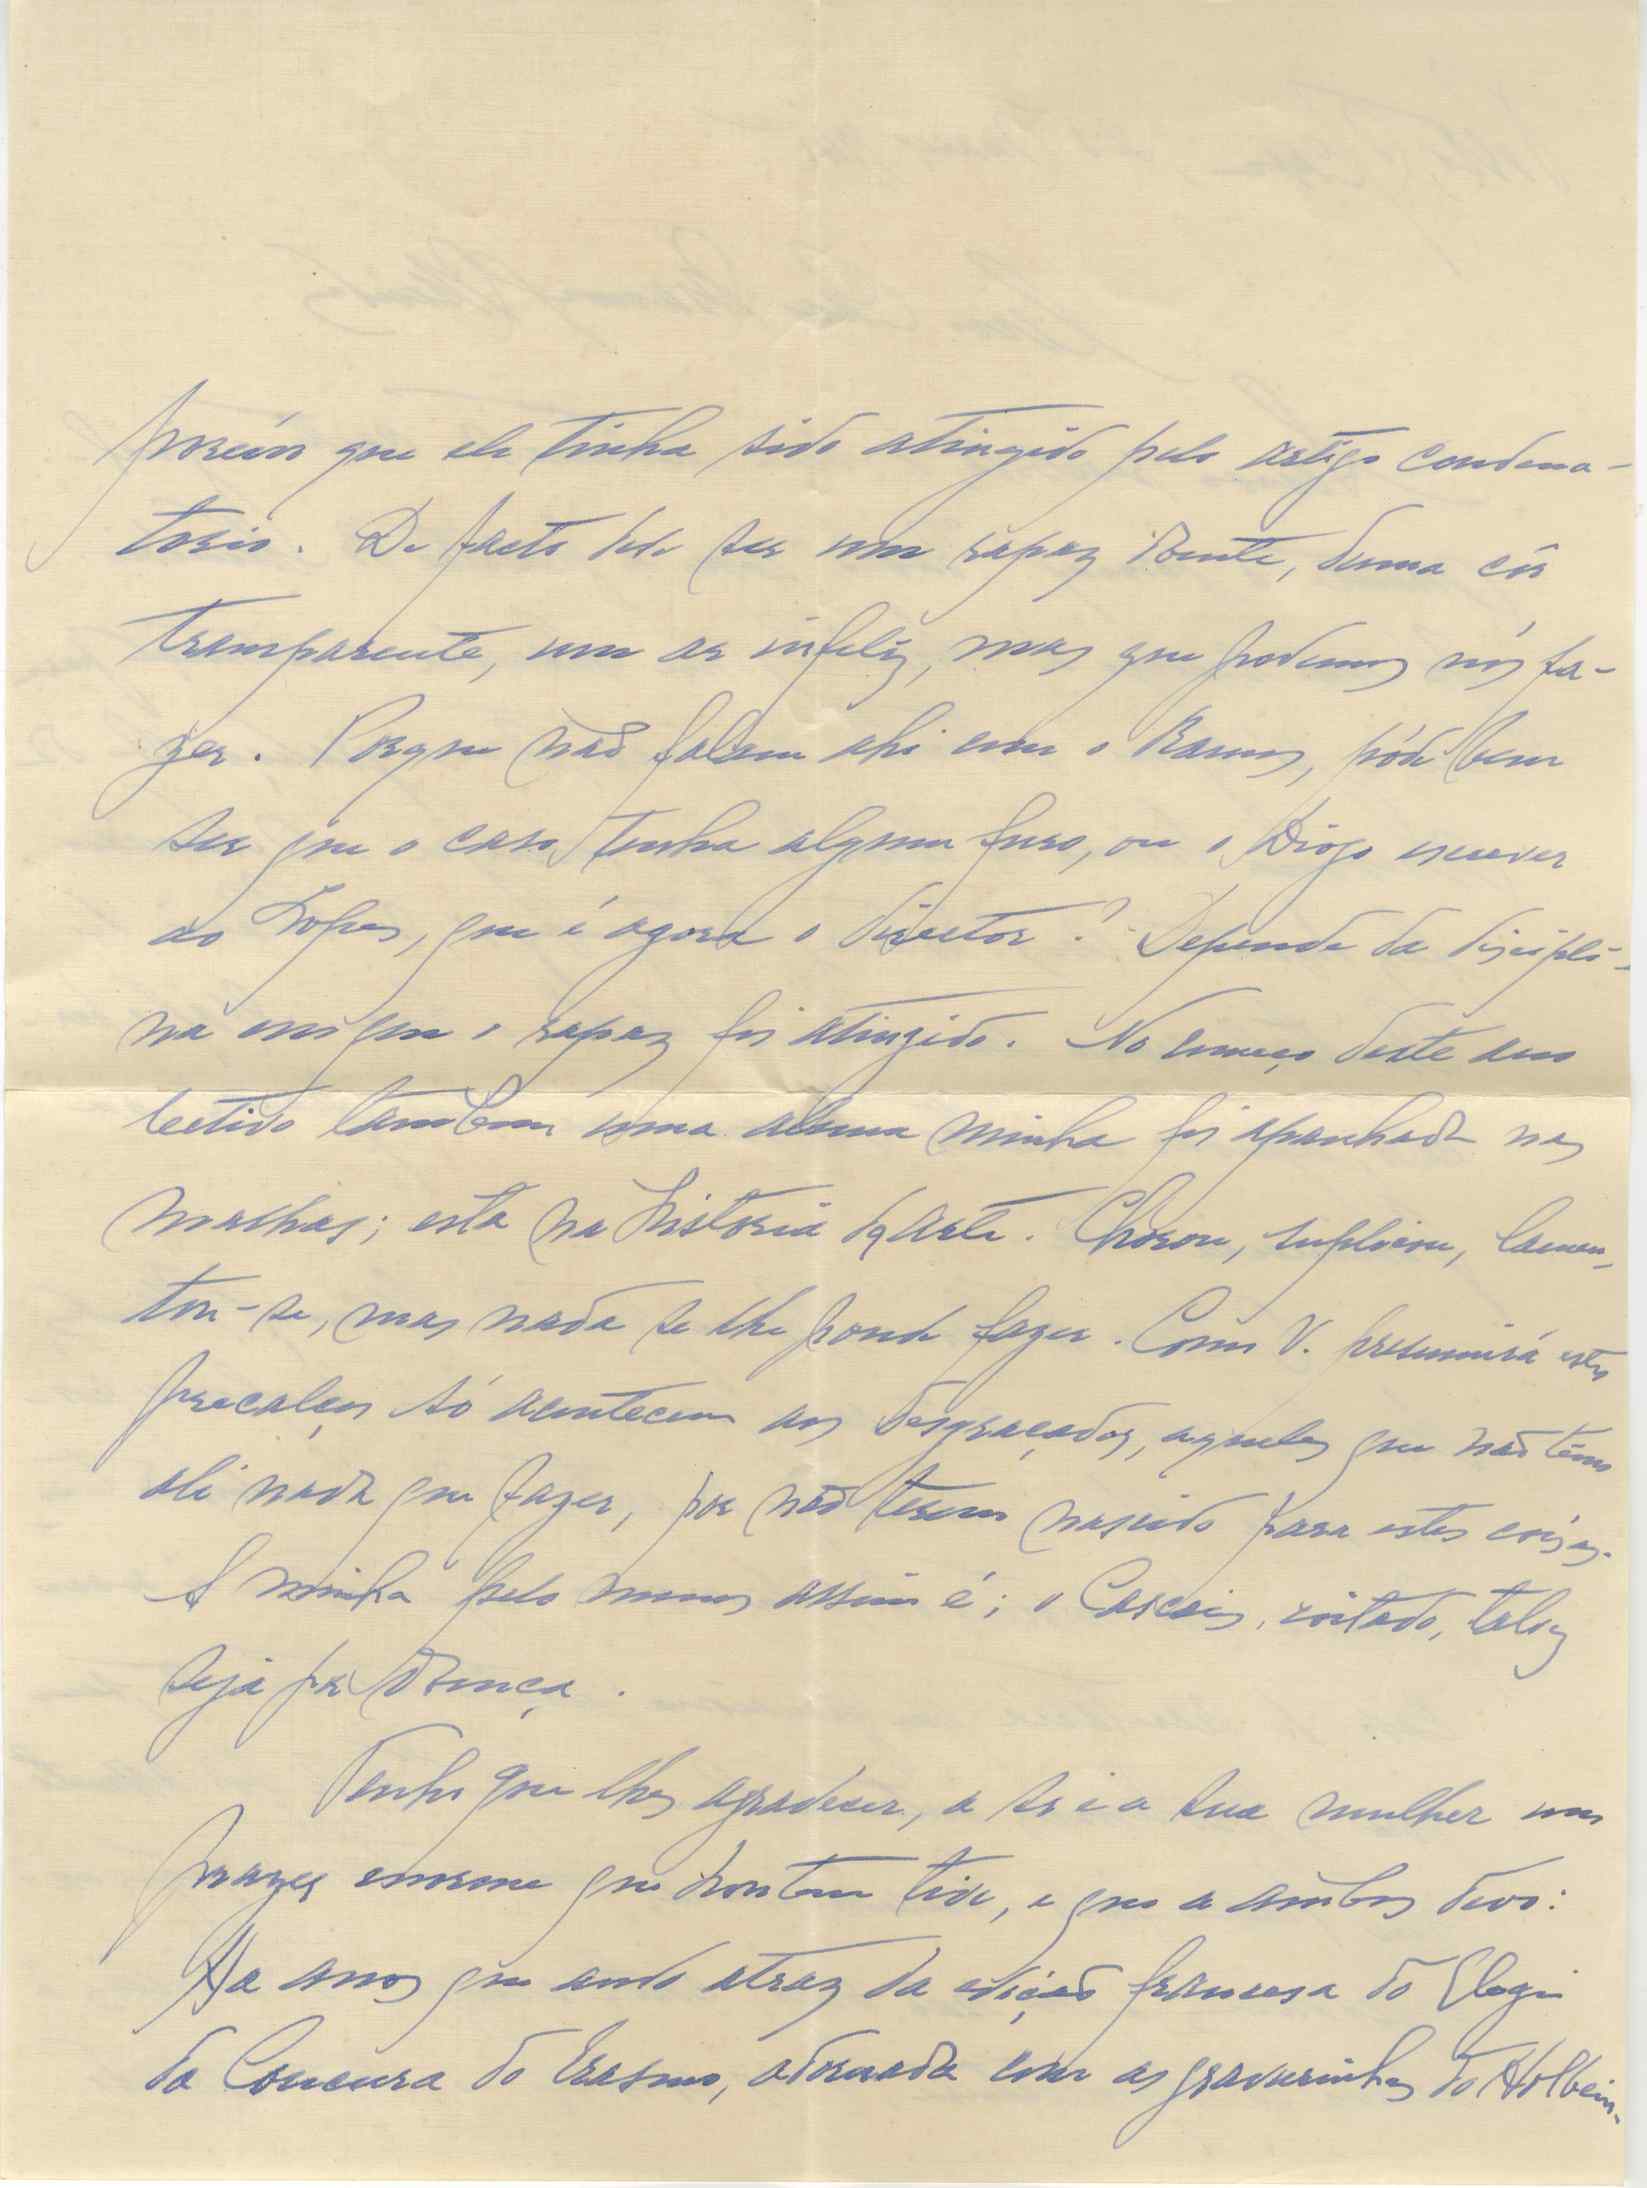 porém que ele tinha sido atingido pelo artigo condena-
torio. De facto deve ser um rapaz doente, duma côr
transparente, um ar infeliz, mas que podemos nós fa-
zer. Porque não falam ahi com o Ramos, póde bem
ser que o caso tenha algum furo, ou o Diogo escrever
ao Lopes, que é agora o director? Depende da discipli-
na em que o rapaz foi atingido. No começo deste ano
lectivo tambem uma aluna minha foi apanhada nas
malhas; esta na Historia da Arte. Chorou, suplicou, lamen-
tou-se, mas nada se lhe poude fazer. Como V. presumirá estes
precalços só acontecem aos desgraçados, aqueles que não têm
ali nada que fazer, por não terem nascido para estas coisas.
A minha pelo menos assim é; o Cascais, coitado, talvez
seja por doença.
Tenho que lhes agradecer, a si e a sua mulher um
prazer enorme que hontem tive, e que a ambos devo:
Ha anos que ando atraz da edição francesa do Elogio
da Loucura do Erasmo, adornada com as gravurinhas do Holbein.